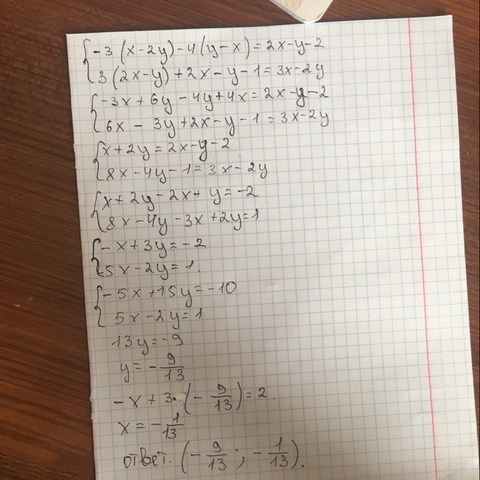 {-3(x-2y)-4(y-x)=2x-y-2
3(2x-y)+2x-y-1=3x-2y
{-3x+6y-4y+4x=2x-y-2
6x-3y+2x-y-1=3x-2y
{x+2y=2x-y-2
8x-4y-1=3x-2y
{x+2y-2x+y=-2
8x-4y-3x+2y=1
{-x+3y=-2
5x-2y=1.
{-5x+15y=-10
5x-2y=1
13y=-9
y=-9/13
-x+3·(-9/13)=2.
x=-1/13
ответ. (-9/13;-1/13).